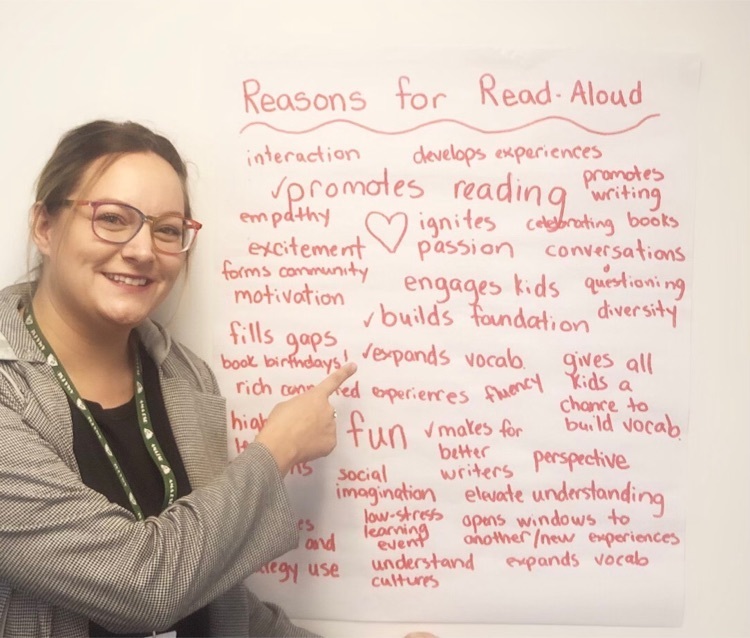 Reasons for Read-Aloud
interaction develops experiences
✓promotes reading promotes writing
empathy ignites passion celebrating books
excitement conversations
forms community engages kids questioning
motivation
✓builds foundation diversity
fills gaps
book birthdays! ✓expands vocab. gives all kids a chance to build vocab.
rich experiences fluency
fun ✓makes for better writers
perspective
social imagination elevate understanding
low-stress learning event opens windows to another/new experiences
and
use understand cultures expands vocab